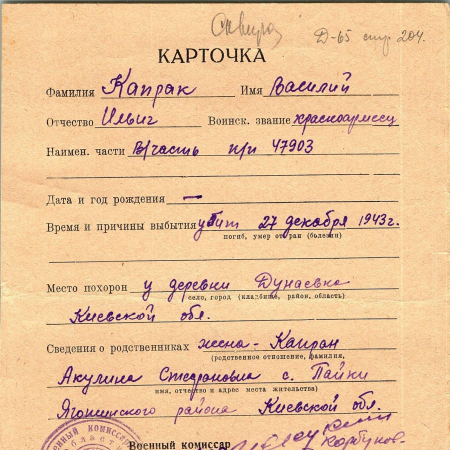 Сквира Д-65 стр 204.
КАРТОЧКА
Фамилия Капрак Имя Василий
Отчество Ильич Воинск. звание красноармеец
Наимен. части В/часть п/п 47903
Дата и год рождения —
Время и причины выбытия убит 27 декабря 1943г.
погиб, умер от ран (болезни)
Место похорон у деревни Дунаевка
село, город (кладбище, район, область)
Киевской обл.
Сведения о родственниках жена - Капран
(родственное отношение, фамилия,
Акулина Стефановна с. Пайки
имя, отчество и адрес места жительства)
Яготинского района Киевской обл.
Военный комиссар